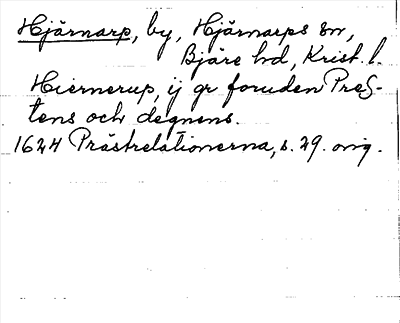 Hjärnarp, by, Hjärnarps sn,
Bjäre hd, Krist. l.
Hiernerup, ij gr foruden Pres-
tens och degnens.
1624 Prästrelationerna, s. 29. orig.